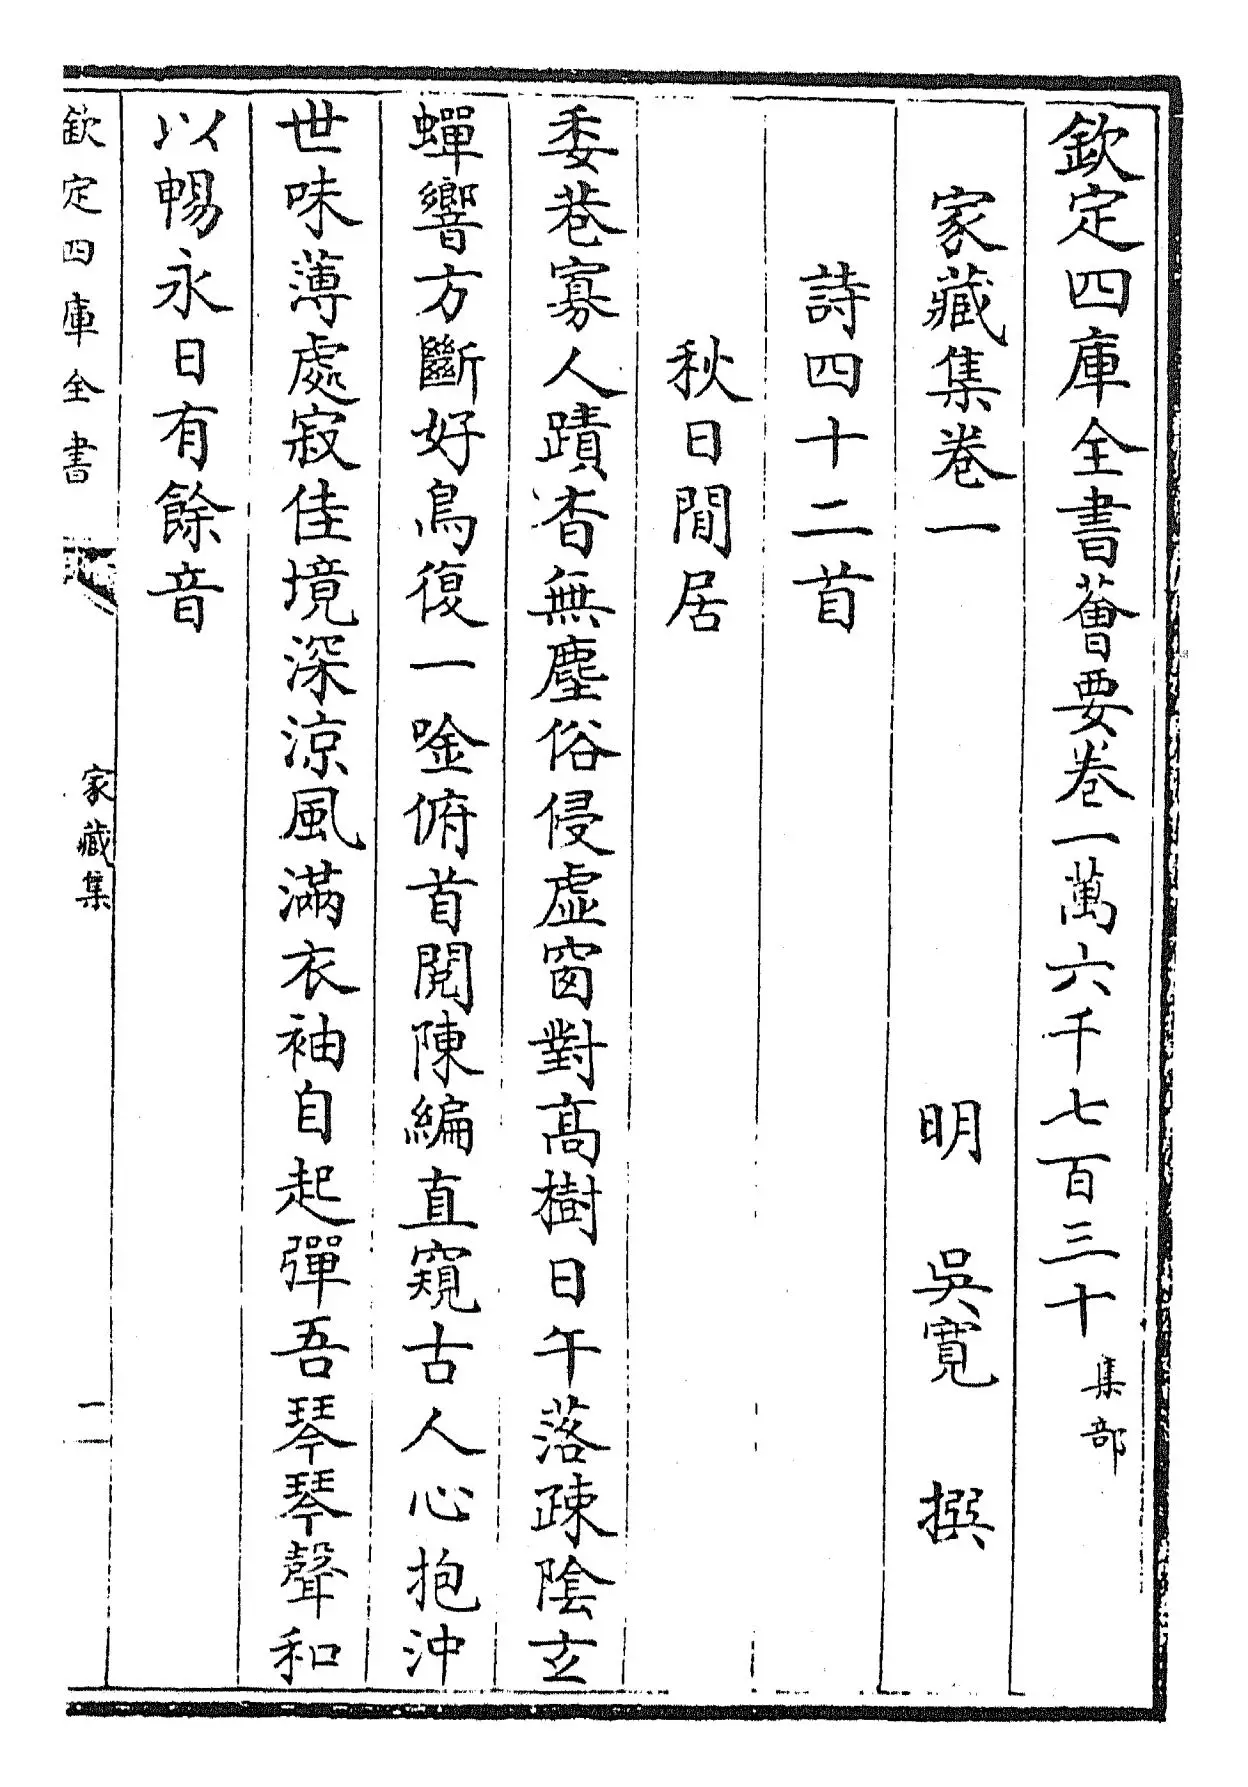 欽定四庫全書薈要卷一萬六千七百三十 集部
家藏集卷一 明 吳寬 撰
詩四十二首
秋日閒居
委巷寡人蹟杳無塵俗侵虛窗對高樹日午落疎陰玄
蟬響方斷好鳥復一唫俯首閱陳編直窺古人心抱沖
世味薄處寂佳境深涼風滿衣袖自起彈吾琴琴聲和
以暢永日有餘音
欽定四庫全書
家藏集
一